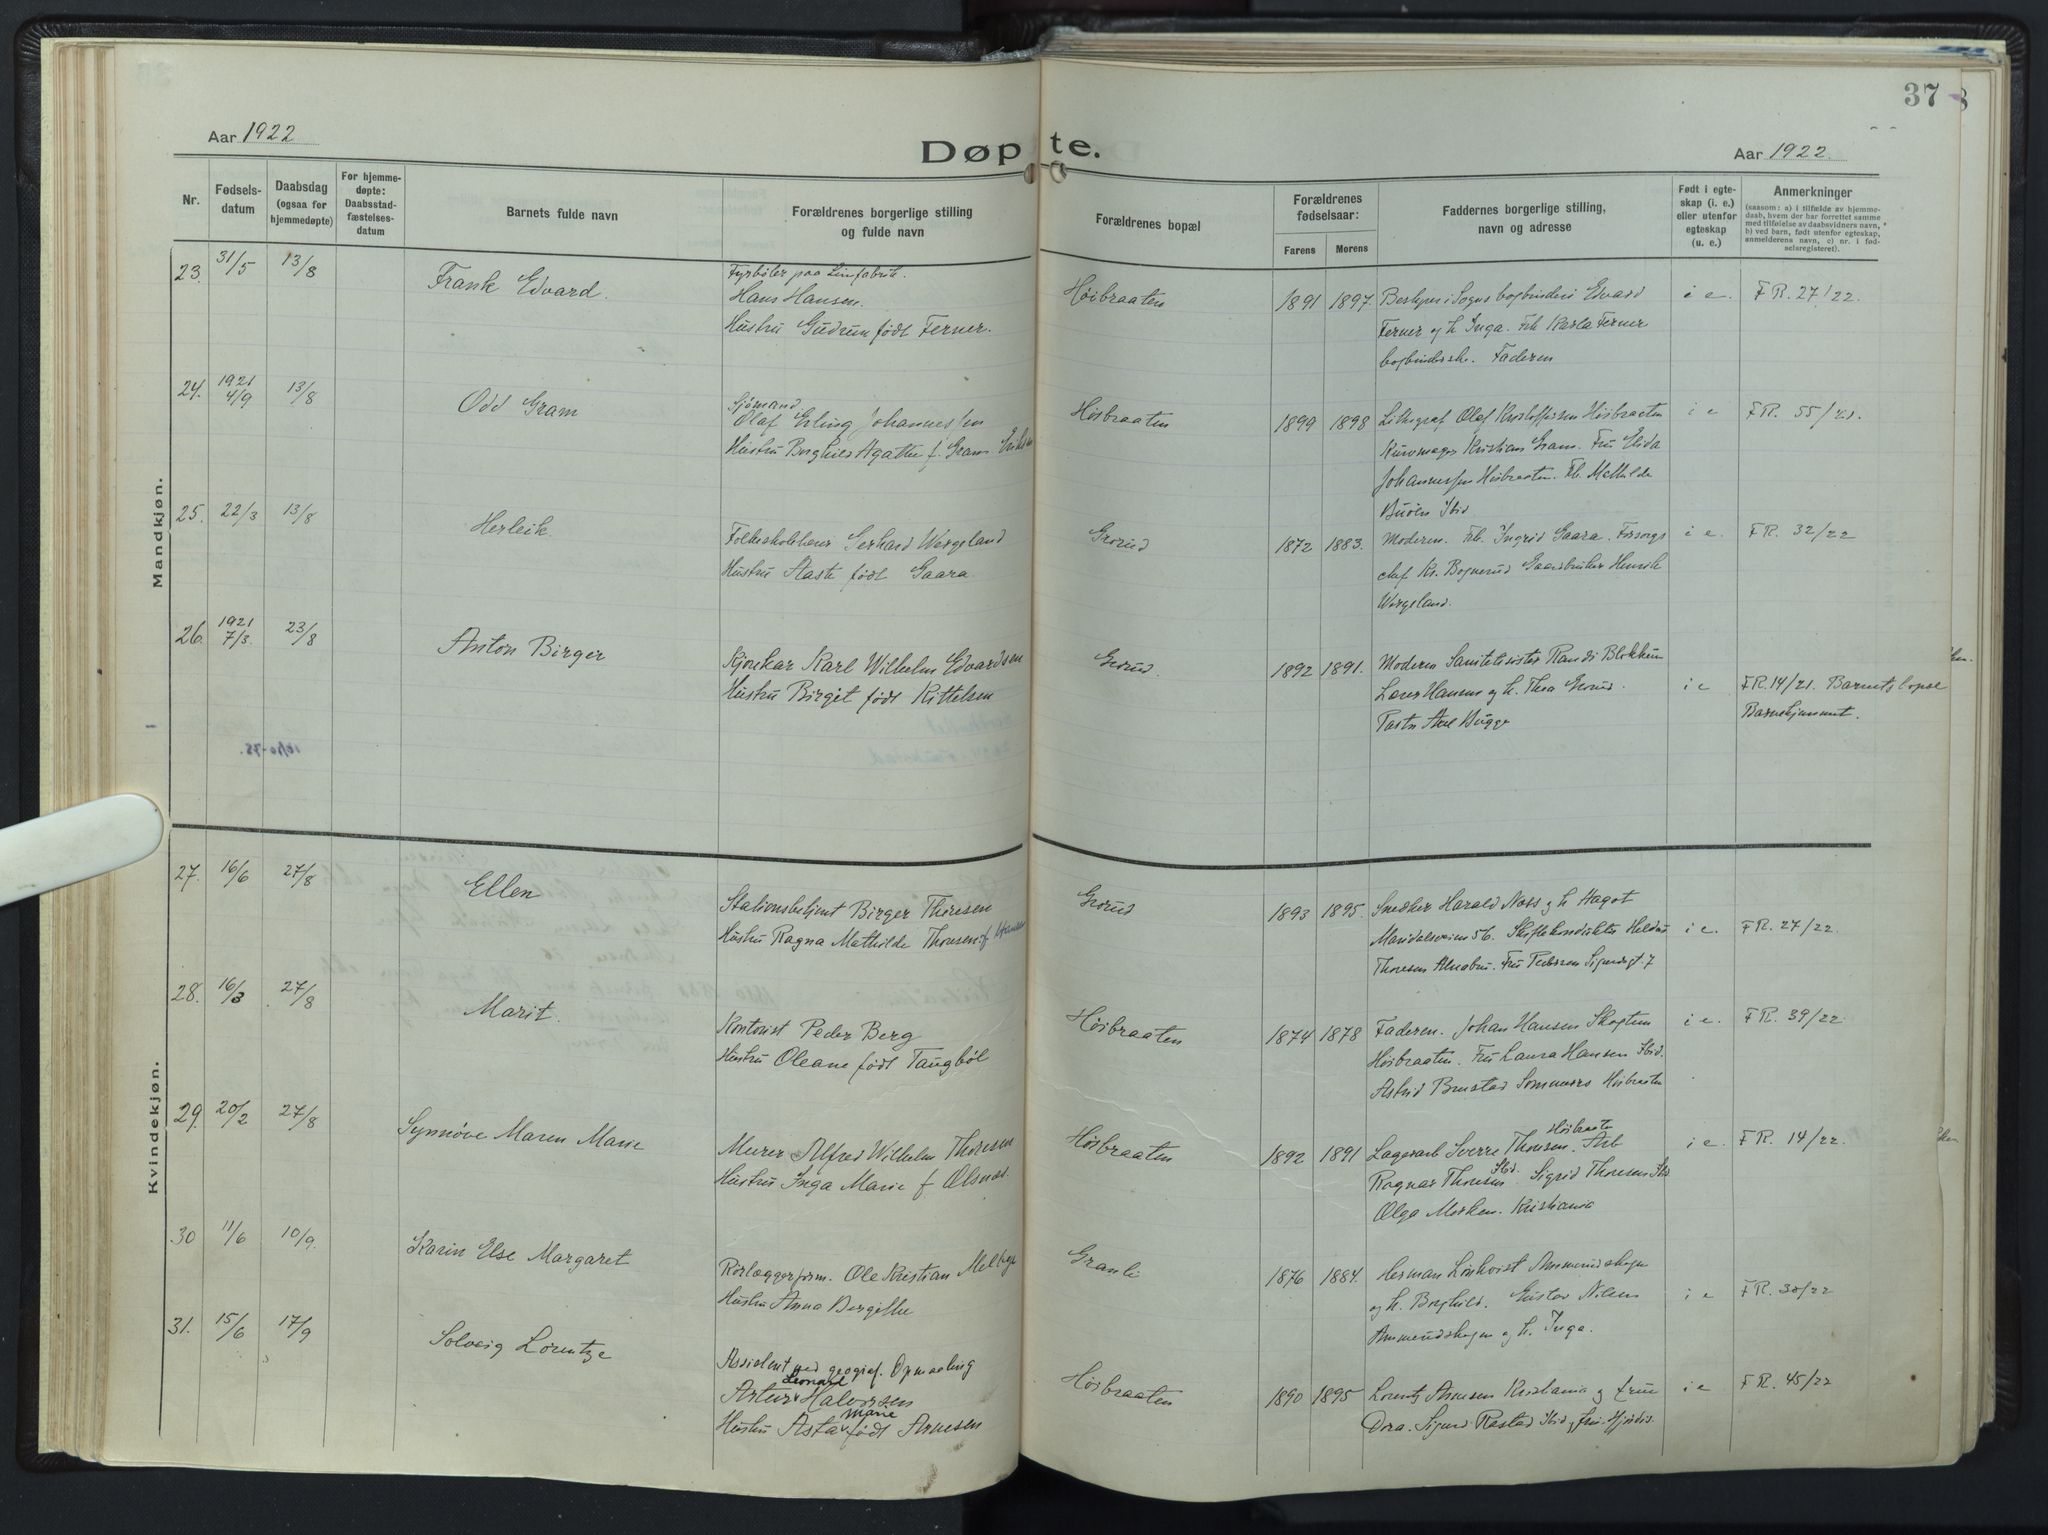 37
Aar 1922
Døpte.
Aar 1922.
Nr.
Fødsels-
datum
Daabsdag
(ogsaa for
hjemmedøpte)
For hjemme-
døpte:
Daabsstad-
fæstelses-
datum
Barnets fulde navn
Forældrenes borgerlige stilling
og fulde navn
Forældrenes bopæl
Forældrenes
fødselsaar:
Farens
Morens
Faddernes borgerlige stilling,
navn og adresse
Født i egte-
skap (i. e.)
eller utenfor
egteskap
(u. e.)
Anmerkninger
(saasom: a) i tilfælde av hjemme-
daab, hvem der har forrettet samme
med tilføielse av daabsvidners navn,
b) ved barn, født utenfor egteskap,
anmelderens navn, c) nr. i fød-
selsregisteret).
Mandkjøn.
23. 31/5 13/8
Frank Edvard.
Fyrbøter paa Limfabrik.
Hans Hansen.
Hustru Gudrun født Ferner.
Høibraaten
1891 1897
Edvard
Ferner og h. Inga. Frk Karla Ferner
Faderen
i e. FR. 27/22.
24. 1921
4/9 13/8
Odd Gram
Sjømand
Olaf Erling Johannessen
Hustru Borghild Agathe f. Gram
Høibraaten
1899 1898
Lithograf Olaf Kristoffersen Høibraaten
Kristian Gram. Fru
Johannessen Høibraaten. Frk. Mathilde
Ibid
i e FR. 55/21.
25. 22/3 13/8
Herleik.
Gerhard Wergeland
Hustru født Gaara.
Grorud
1872 1883.
Moderen. Frk. Ingrid Gaara.
chef Kr. Bognerud Gaardbruker Henrik
Wergeland.
i e. FR. 32/22
26. 1921
7/3. 23/8
Anton Birger
Karl Wilhelm Edvardsen
Hustru Birgit født Kittelsen
Grorud.
1892 1891.
Moderen Randi
Hansen og h. Thea Grorud.
Bugge
i e FR. 14/21. Barnets
16/10-75.
Kvindekjøn.
27. 16/6 27/8
Ellen
Stationsbetjent Birger Thoresen
Hustru Ragna Mathilde Thoresen f.
Grorud
1893 1895.
Snedker Harald Næss og h. Hagot
Maridalsveien 56.
Thoresen Alnabru. Fru
i e. FR. 27/22.
28. 16/3 27/8
Marit.
Kontorist Peder Berg
Hustru Oleane født Taugbøl
Høibraaten
1874 1878
Faderen. Johan Hansen
Høibraaten. Fru Laura Hansen Ibid.
Astrid Brustad Høibraaten
i e. FR. 39/22
29. 20/2 27/8
Synnøve Maren Marie
Murer Alfred Wilhelm Thoresen
Hustru Inga Marie f Olsnæs.
Høibraaten
1892 1891
Høibraaten
Lagerarb Sverre Thoresen. Arb
Ragnar Thoresen Ibid. Sigrid Thoresen Ibid
Olga Morken. Kristiania
i e. FR. 14/22.
30 11/6 10/9.
Karin Else Margaret
Rørlæggerform. Ole Kristian
Hustru Anna Bergithe
Granli
1876 1884.
Herman Ammerudskogen
og h. Borghild. Gustav Nilsen
Ammerudskogen og h. Inga.
i e FR. 30/22
31. 15/6 17/9
Solveig Lorentze
Assistent ved geograf. Opmaaling
Artur Leonard Halvorsen
Hustru Asta Marie født Arnesen
Høibraaten
1890 1895
Lorentz Arnesen Kristiania og frue
Dora. Sigurd Rastad Ibid og fru Hjørdis.
i e FR. 45/22